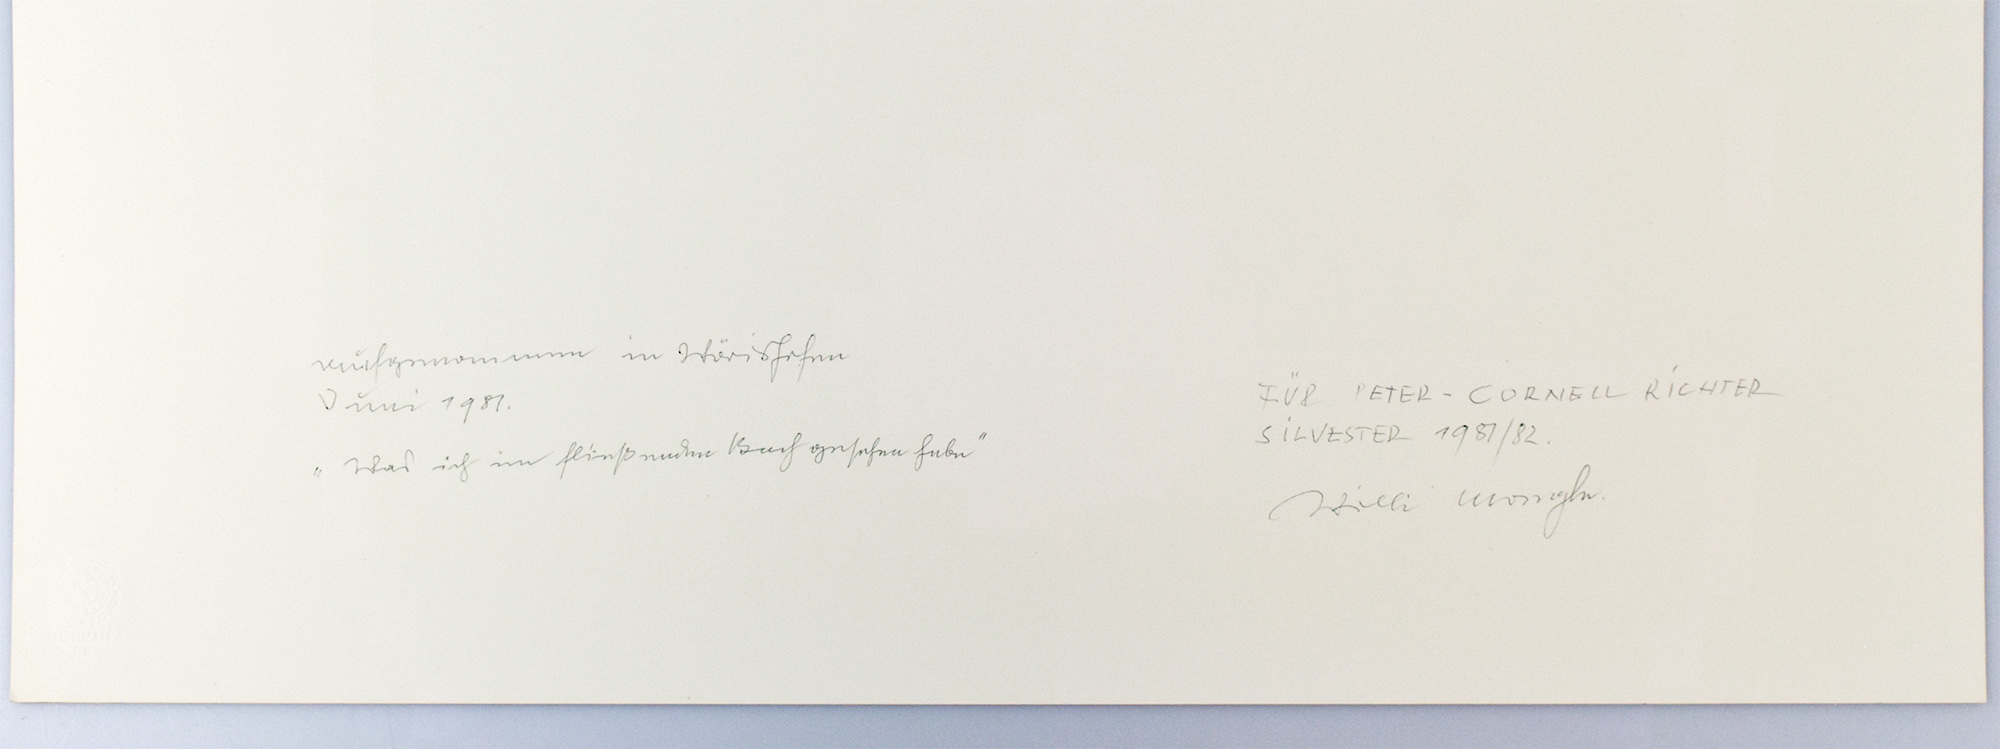 aufgenommen in Wörishofen
Juni 1981.
„Was ich im fließenden Bach gesehen habe"
FÜR PETER-CORNELL RICHTER
SILVESTER 1981/82.
Willi